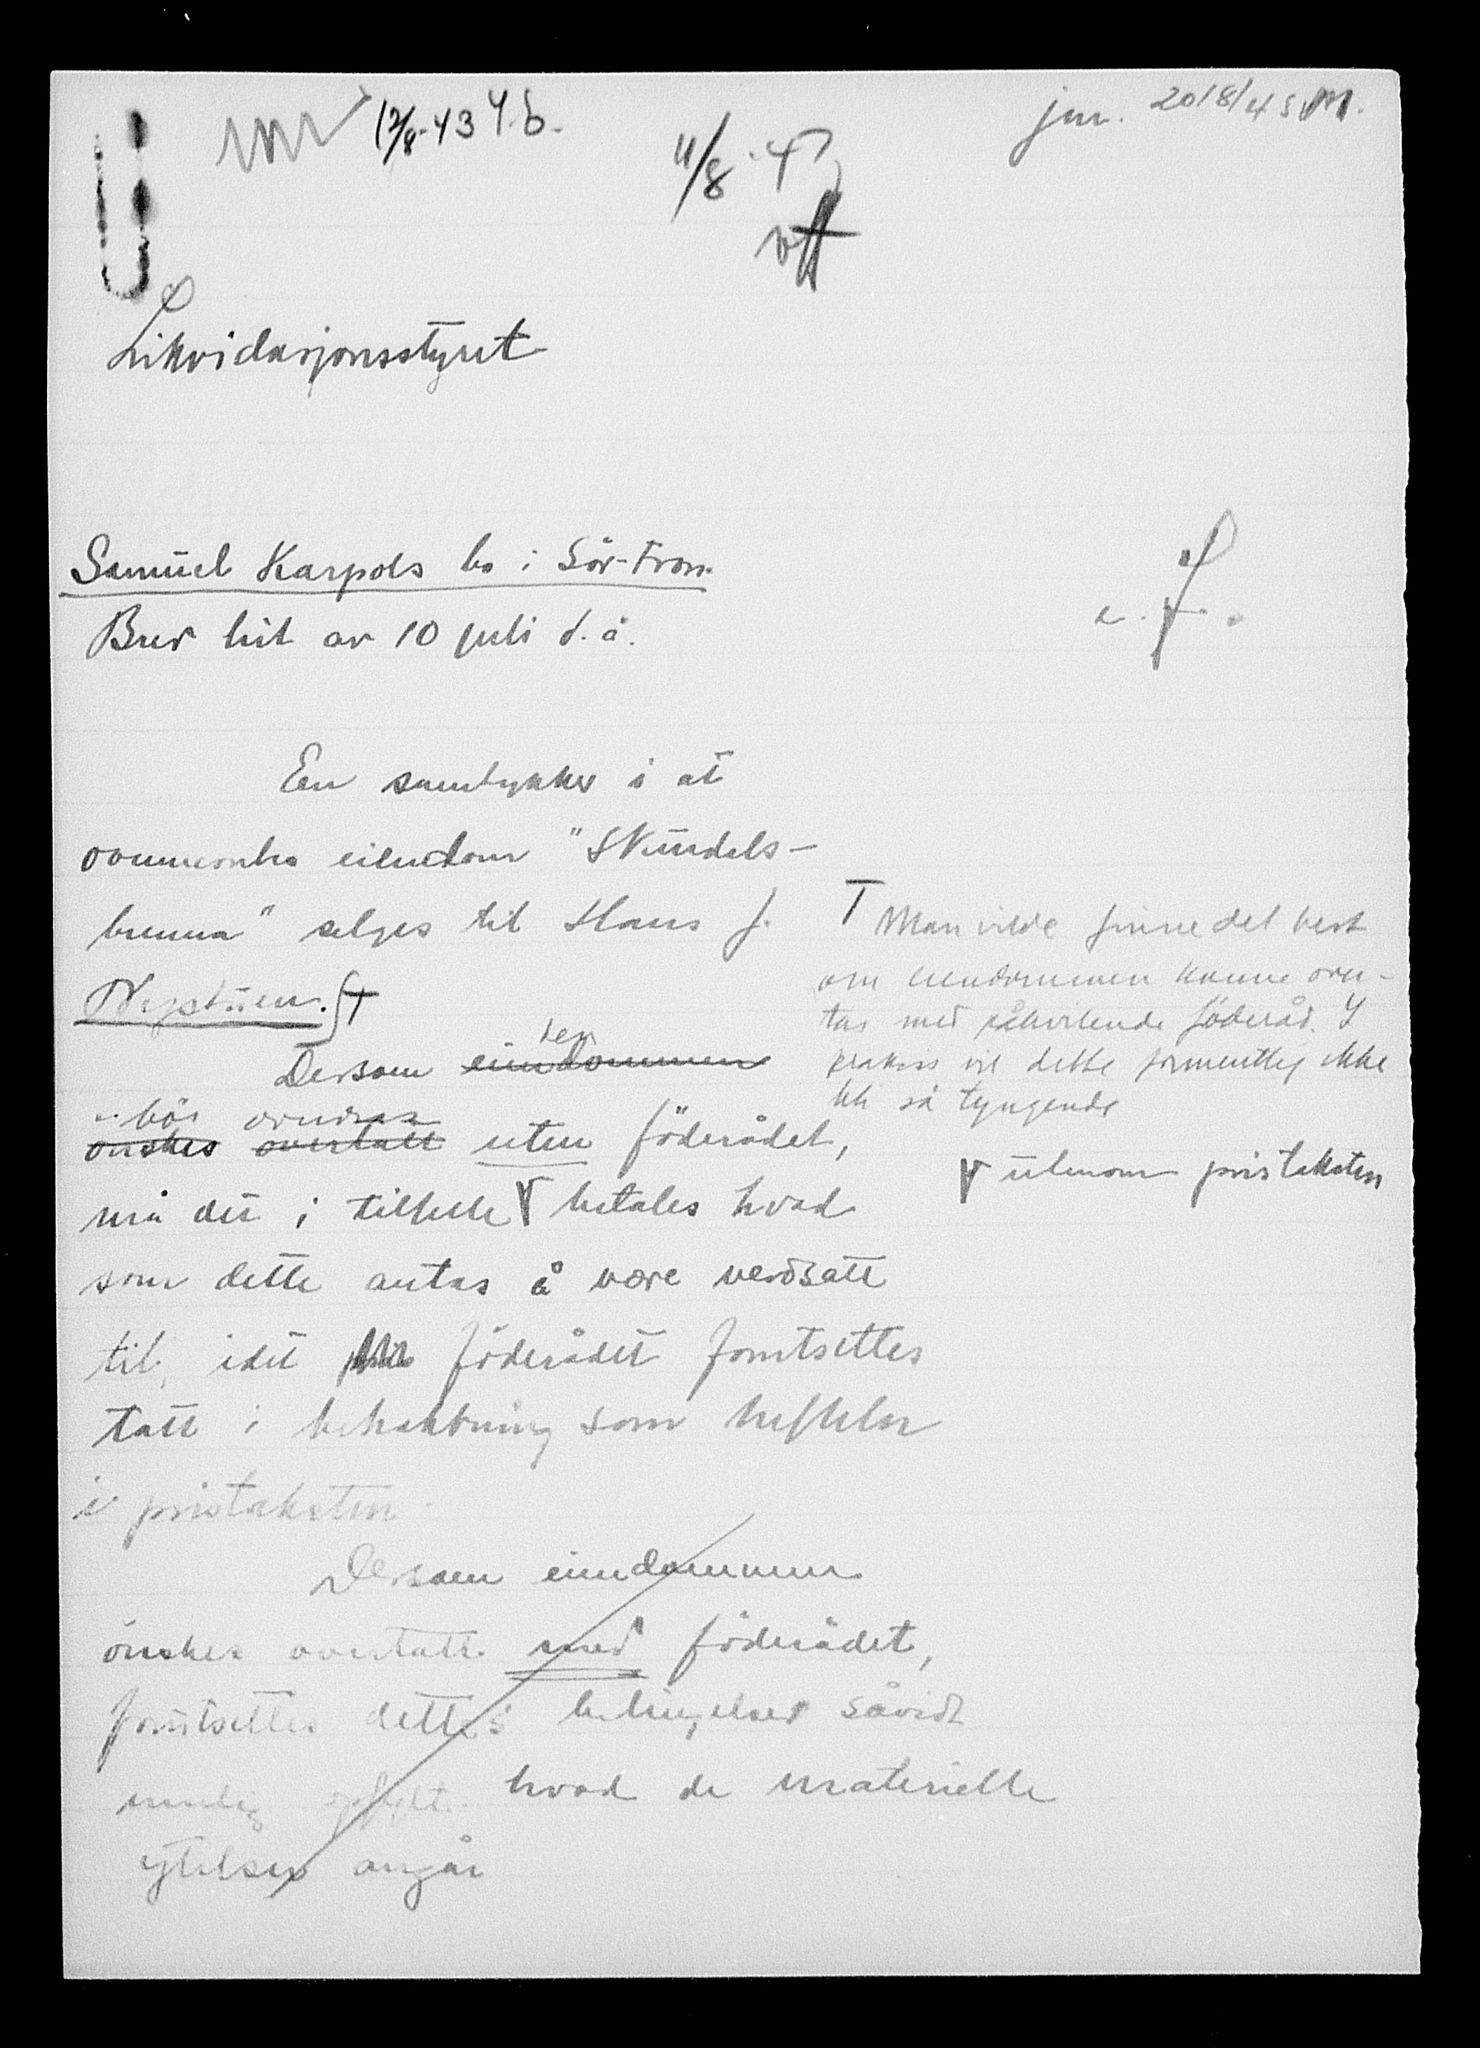 jnr. 2018/43 M.
12/8-43 Y.b.
11/8-43
Likvidasjonsstyret
Samuel Karpols bo i Sör-Fron.
Brev hit av 10 juli d.å.
En samtykker i at
ovennevnte eiendom "Skurdals-
brenna" selges til Hans J.
Nystuen.
T Man vilde finne det best
om eiendommen kunne over-
tas med påhvilende föderåd. I
praksis vil dette formentlig ikke
bli så tyngende
Dersom eiendommen den
bör overdras
önskes overtatt uten föderådet,
må det i tilfelle V betales hvad
V utenom pristaksten
som dette antas å være verdsatt
til, idet föderådet forutsettes
tatt i betraktning som heftelse
i pristaksten.
Dersom eiendommen
önskes overtatt med föderådet,
forutsettes dettes betingelser såvidt
mulig opfylt hvad de materielle
ytelser angår